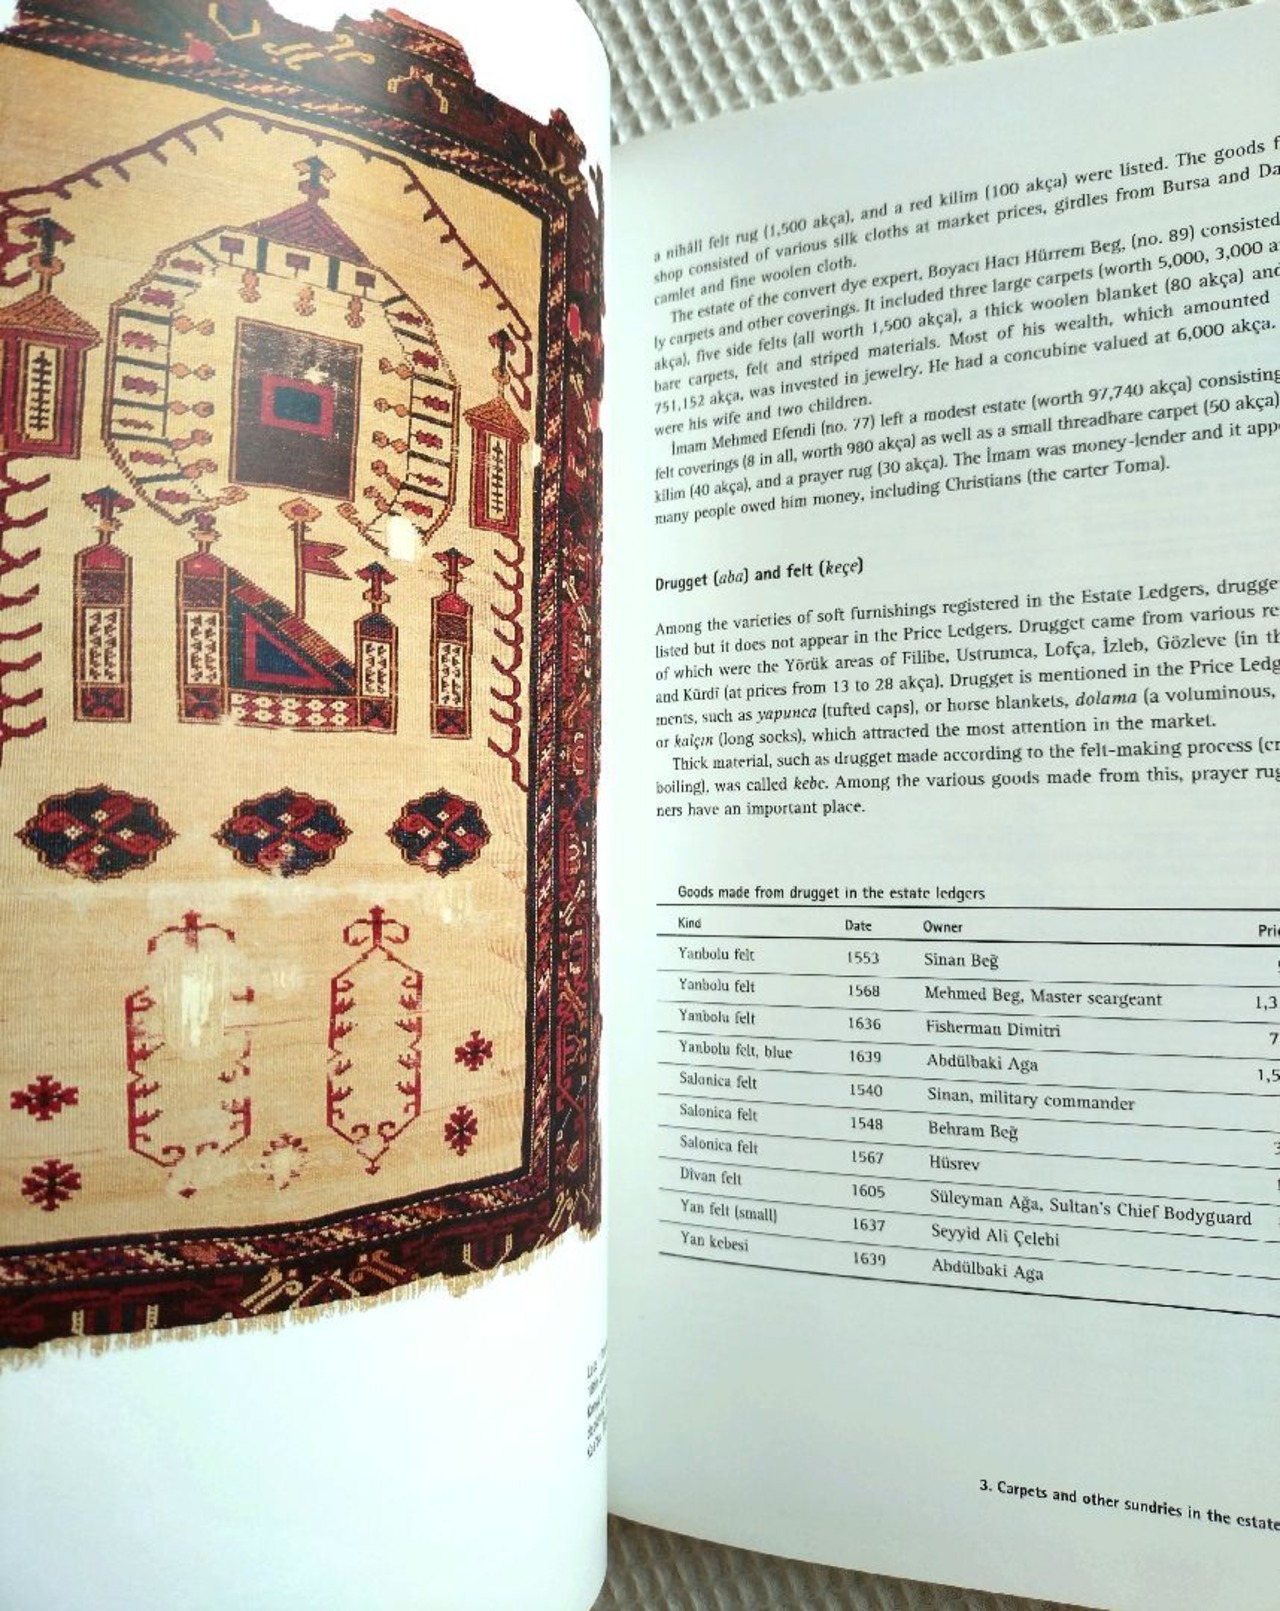 a nihâlî felt rug (1,500 akça), and a red kilim (100 akça) were listed. The goods f
shop consisted of various silk cloths at market prices, girdles from Bursa and Da
camlet and fine woolen cloth.
The estate of the convert dye expert, Boyacı Hacı Hürrem Beg, (no. 89) consisted
ly carpets and other coverings. It included three large carpets (worth 5,000, 3,000 a
akça), five side felts (all worth 1,500 akça), a thick woolen blanket (80 akça) and
bare carpets, felt and striped materials. Most of his wealth, which amounted
751,152 akça, was invested in jewelry. He had a concubine valued at 6,000 akça.
were his wife and two children.
İmam Mehmed Efendi (no. 77) left a modest estate (worth 97,740 akça) consisting
felt coverings (8 in all, worth 980 akça) as well as a small threadbare carpet (50 akça)
kilim (40 akça), and a prayer rug (30 akça). The İmam was money-lender and it app
many people owed him money, including Christians (the carter Toma).
Drugget (aba) and felt (keçe)
Among the varieties of soft furnishings registered in the Estate Ledgers, drugge
listed but it does not appear in the Price Ledgers. Drugget came from various re
of which were the Yörük areas of Filibe, Ustrumca, Lofça, İzleb, Gözleve (in th
and Kürdî (at prices from 13 to 28 akça). Drugget is mentioned in the Price Ledg
ments, such as yapunca (tufted caps), or horse blankets, dolama (a voluminous,
or kalçın (long socks), which attracted the most attention in the market.
Thick material, such as drugget made according to the felt-making process (cr
boiling), was called kebe. Among the various goods made from this, prayer rug
ners have an important place.
Goods made from drugget in the estate ledgers
Kind Date Owner Pric
Yanbolu felt 1553 Sinan Beğ
Yanbolu felt 1568 Mehmed Beg, Master seargeant 1,3
Yanbolu felt 1636 Fisherman Dimitri 7
Yanbolu felt, blue 1639 Abdülbaki Aga 1,5
Salonica felt 1540 Sinan, military commander
Salonica felt 1548 Behram Beğ 3
Salonica felt 1567 Hüsrev
Dîvan felt 1605 Süleyman Ağa, Sultan's Chief Bodyguard
Yan felt (small) 1637 Seyyid Ali Çelebi
Yan kebesi 1639 Abdülbaki Aga
3. Carpets and other sundries in the estate